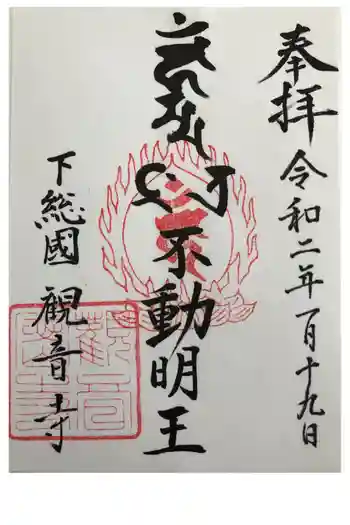 奉拝
令和二年一月十九日
不動明王
下総國
觀音寺